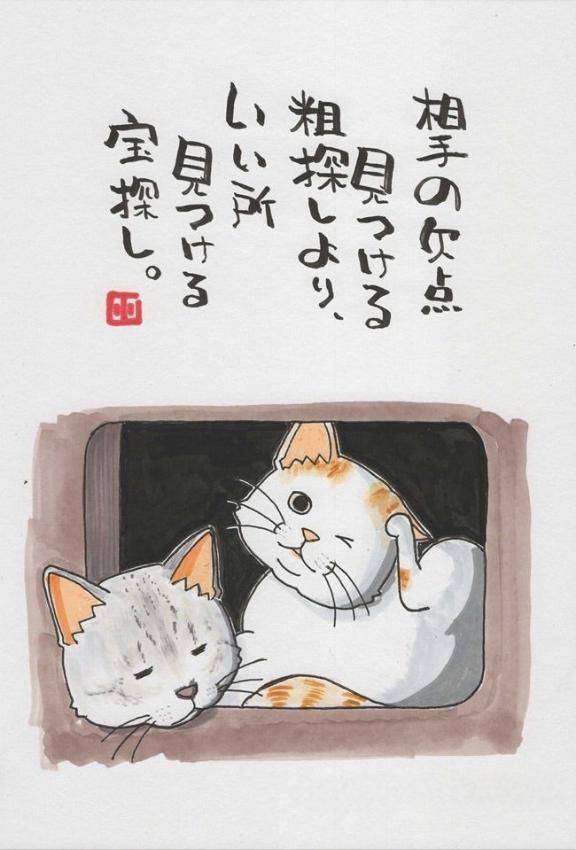 相手の欠点
見つける
粗探しより、
いい所
見つける
宝探し。